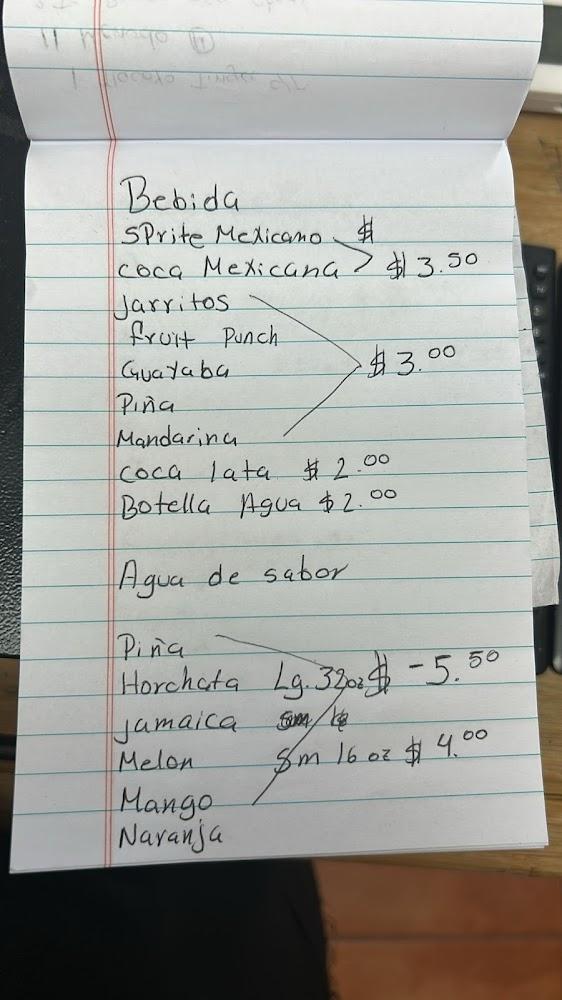 Bebida
SPrite Mexicano $
coca Mexicana $3.50
Jarritos
fruit Punch
Guayaba $3.00
Piña
Mandarina
coca lata $2.00
Botella Agua $2.00
Agua de sabor
Piña
Horchata Lg. 32oz $ -5.50
Jamaica sm
Melon Sm 16 oz $4.00
Mango
Naranja